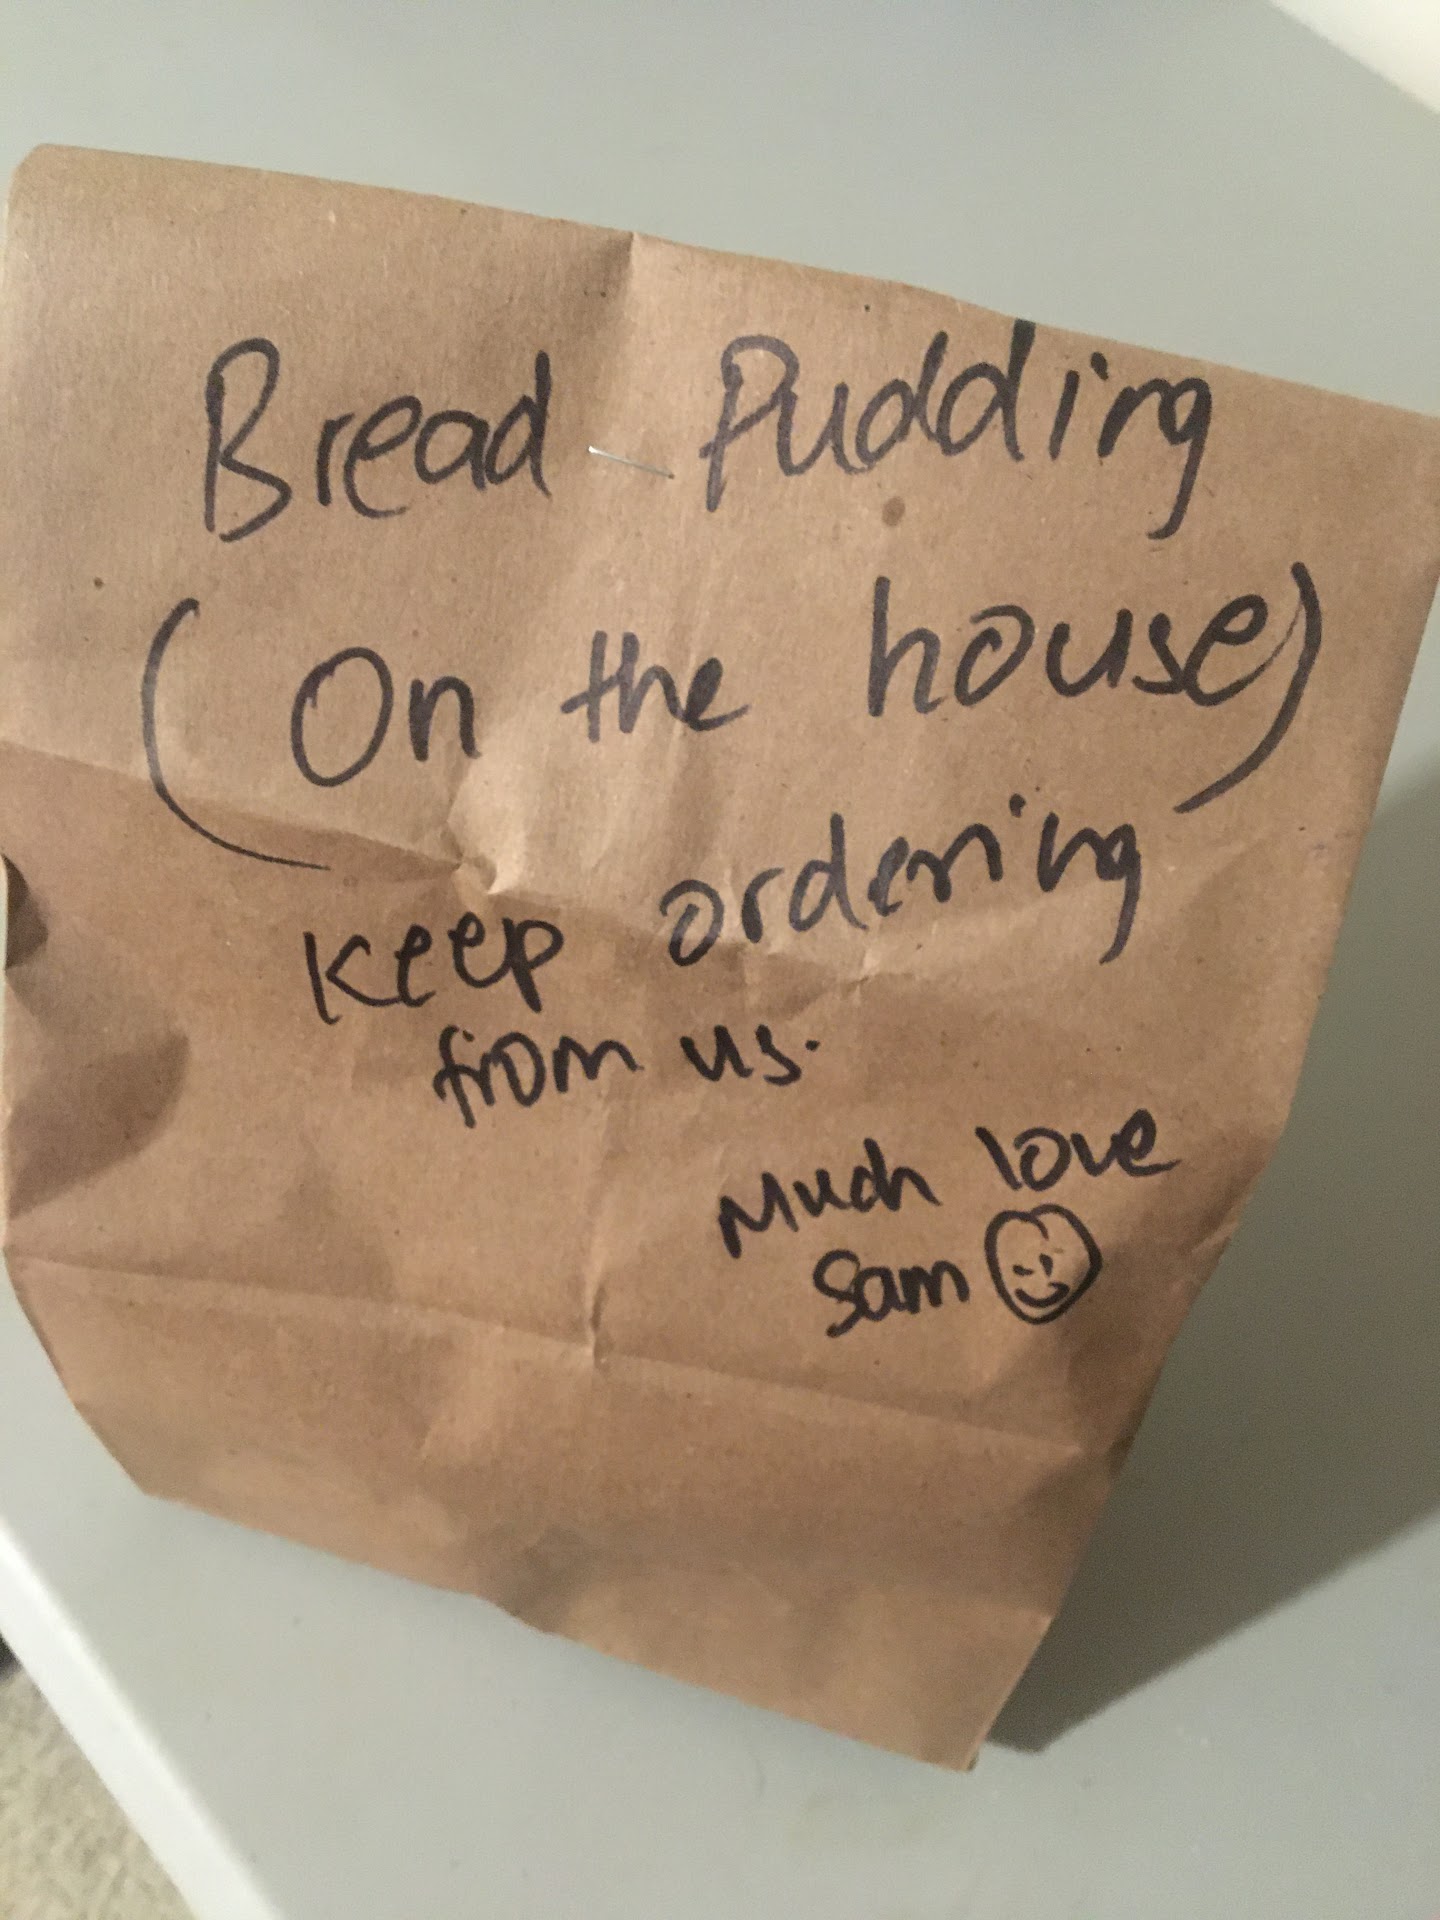 Bread Pudding
(On the house)
Keep ordering
from us.
Much love
Sam